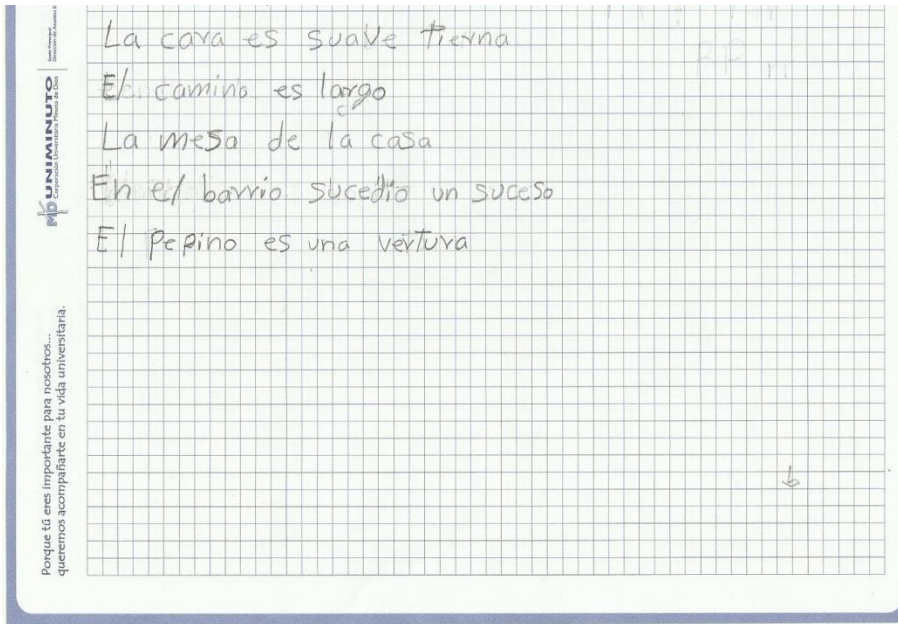 La cara es suave tierna
El camino es largo
La mesa de la casa
En el barrio sucedio un suceso
El pepino es una vertura
UNIMINUTO
Corporación Universitaria Minuto de Dios
Porque tú eres importante para nosotros...
queremos acompañarte en tu vida universitaria.